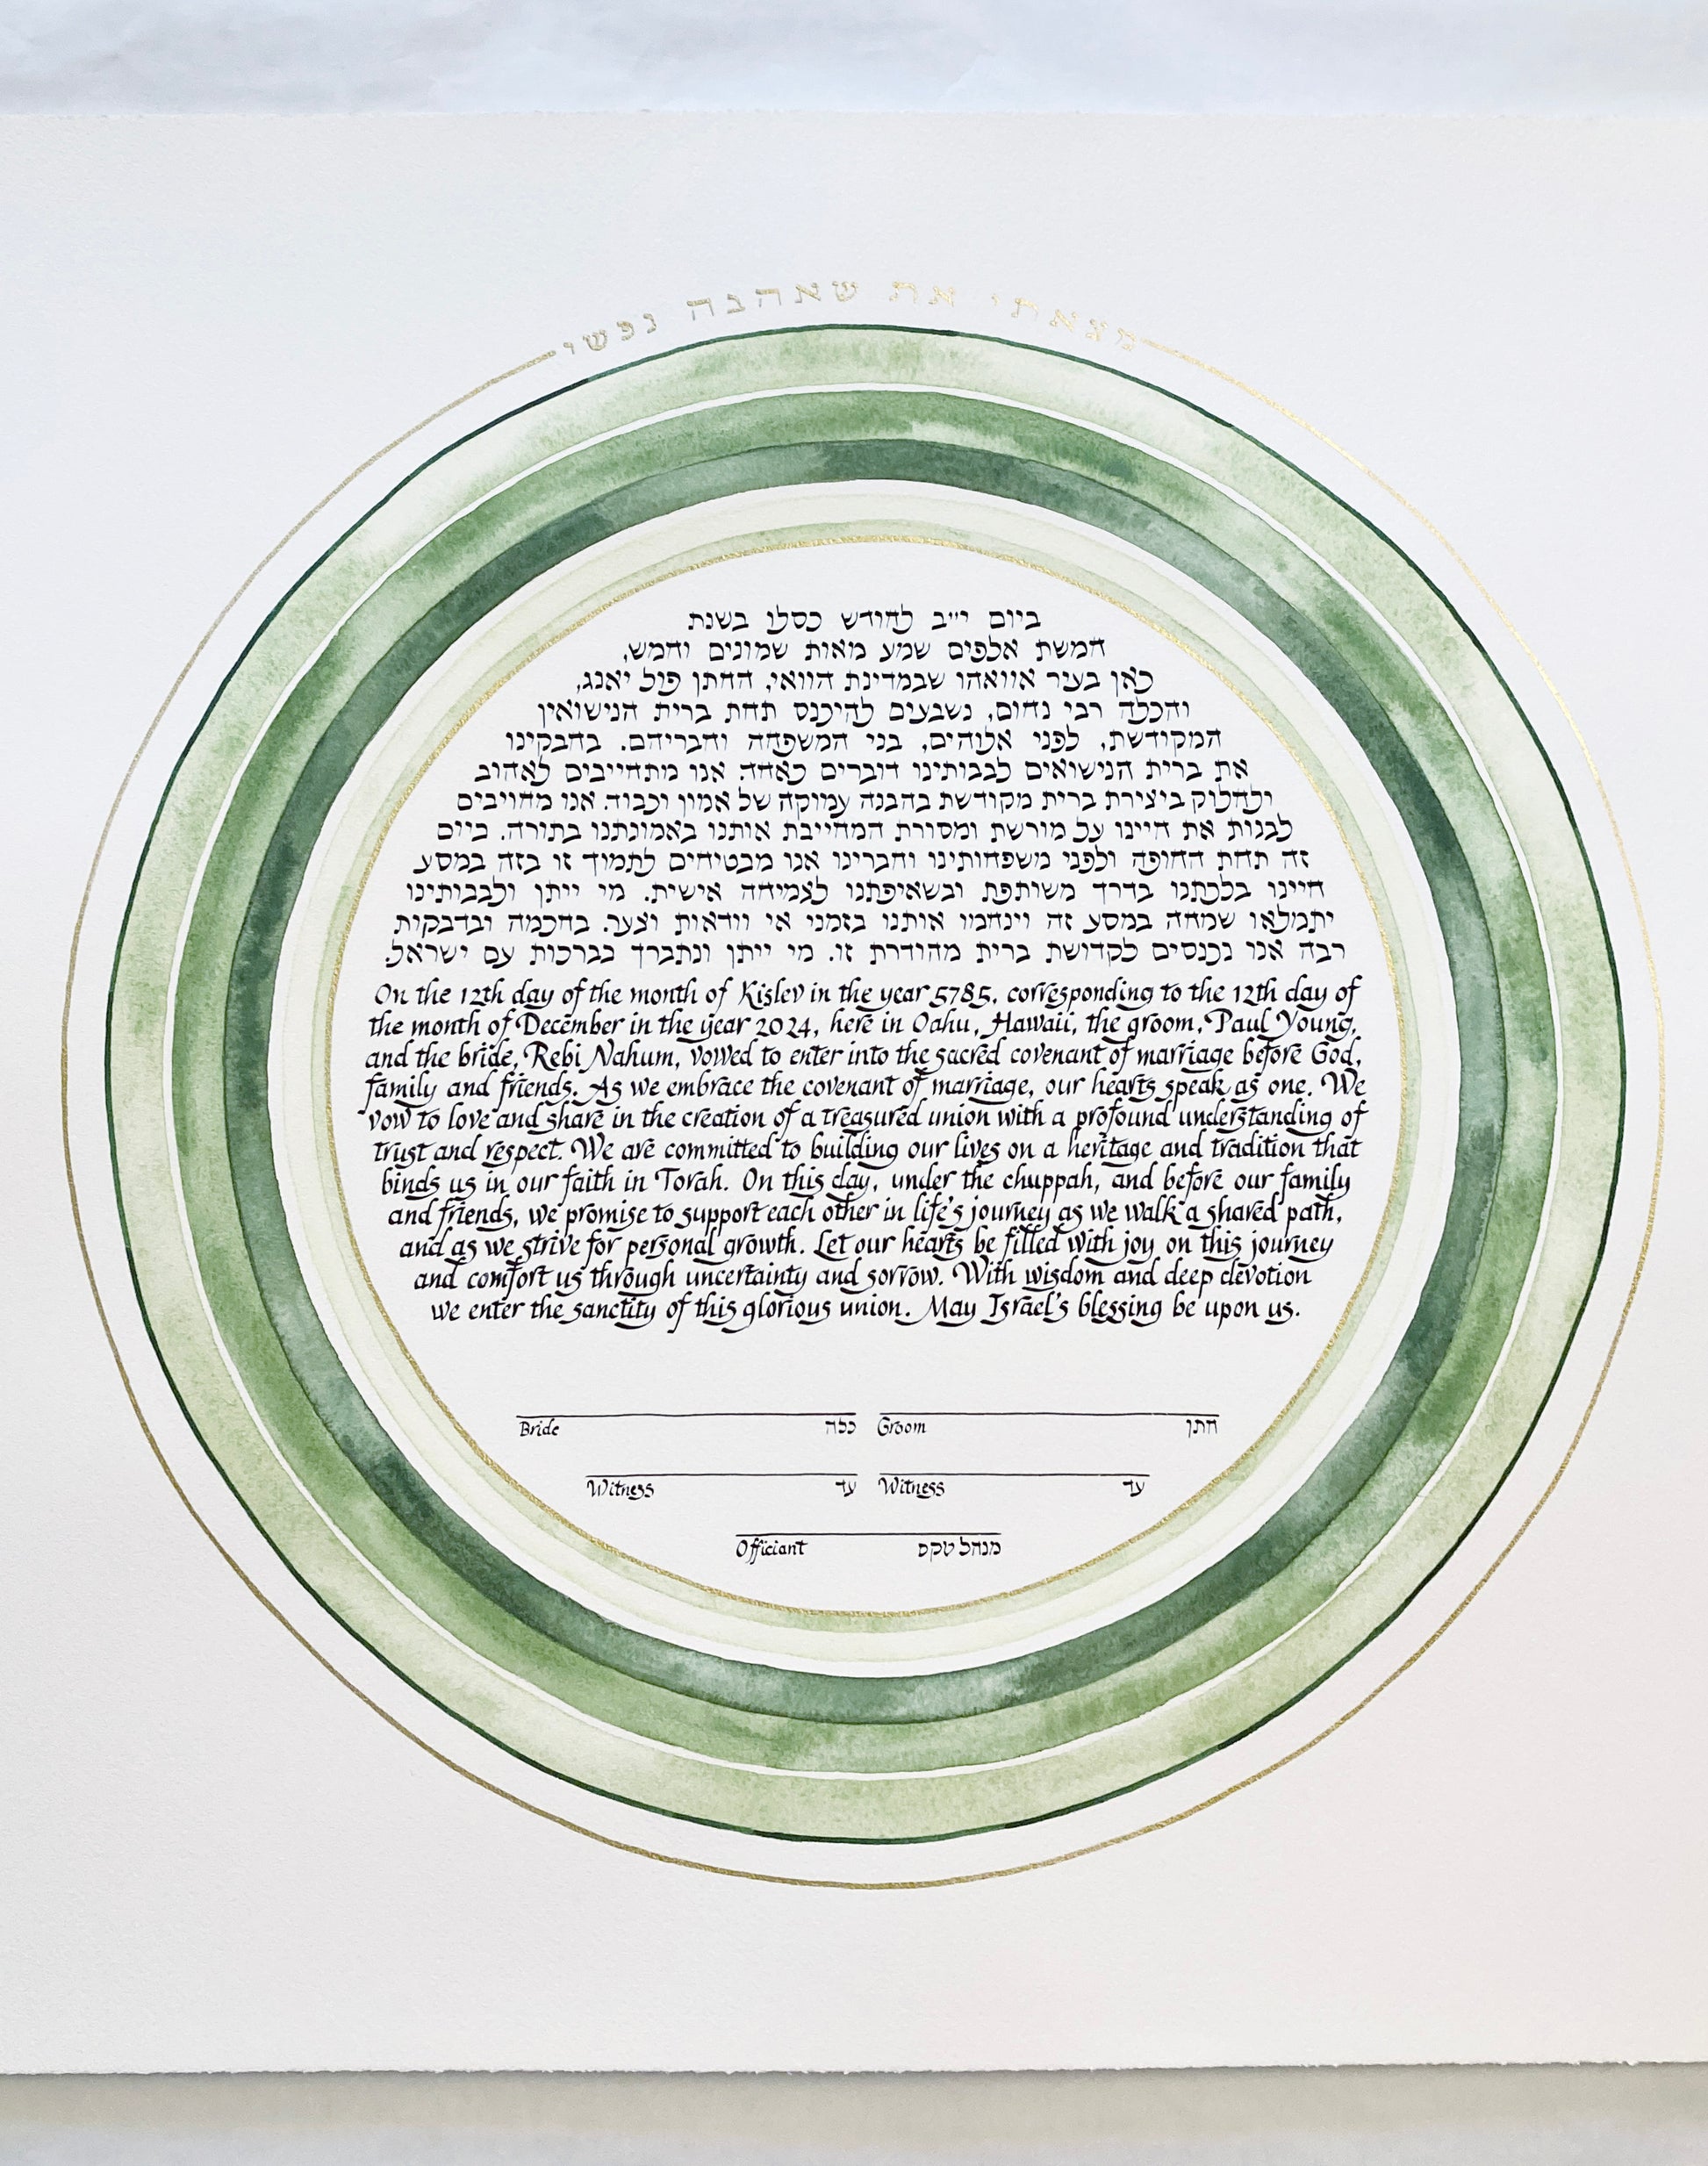 מצאתי את שאהבה נפשי
ביום י״ב לחודש כסלו בשנת
חמשת אלפים שמע מאות שמונים וחמש,
כאן בעיר אוואהו שבמדינת הוואי, החתן פול יאנג,
והכלה רבי נחום, נשבעים להיכנס תחת ברית הנישואין
המקודשת, לפני אלוהים, בני המשפחה וחבריהם. בחבקינו
את ברית הנישואים לבבותינו דוברים כאחה. אנו מתחייבים לאהוב
ולחלוק ביצירת ברית מקודשת בהבנה עמוקה של אמון וכבוד. אנו מחויבים
לבנות את חיינו על מורשת ומסורת המחייבת אותנו באמונתנו בתורה. ביום
זה תחת החופה ולפני משפחותינו וחברינו אנו מבטיחים לתמוך זו בזה במסע
חיינו בלכתנו בדרך משותפת ובשאיפתנו לצמיחה אישית. מי ייתן ולבבותינו
יתמלאו שמחה במסע זה וינחמו אותנו בזמני אי וודאות וצער. בחכמה ובדבקות
רבה אנו נכנסים לקדושת ברית מהודרת זו. מי ייתן ונתברך בברכות עם ישראל.
On the 12th day of the month of Kislev in the year 5785, corresponding to the 12th day of
the month of December in the year 2024, here in Oahu, Hawaii, the groom, Paul Young,
and the bride, Rebi Nahum, vowed to enter into the sacred covenant of marriage before God,
family and friends. As we embrace the covenant of marriage, our hearts speak as one. We
vow to love and share in the creation of a treasured union with a profound understanding of
trust and respect. We are committed to building our lives on a heritage and tradition that
binds us in our faith in Torah. On this day, under the chuppah, and before our family
and friends, we promise to support each other in life's journey as we walk a shared path,
and as we strive for personal growth. Let our hearts be filled with joy on this journey
and comfort us through uncertainty and sorrow. With wisdom and deep devotion
we enter the sanctity of this glorious union. May Israel's blessing be upon us.
Bride כלה Groom חתן
Witness עד Witness עד
Officiant מנהל טקס